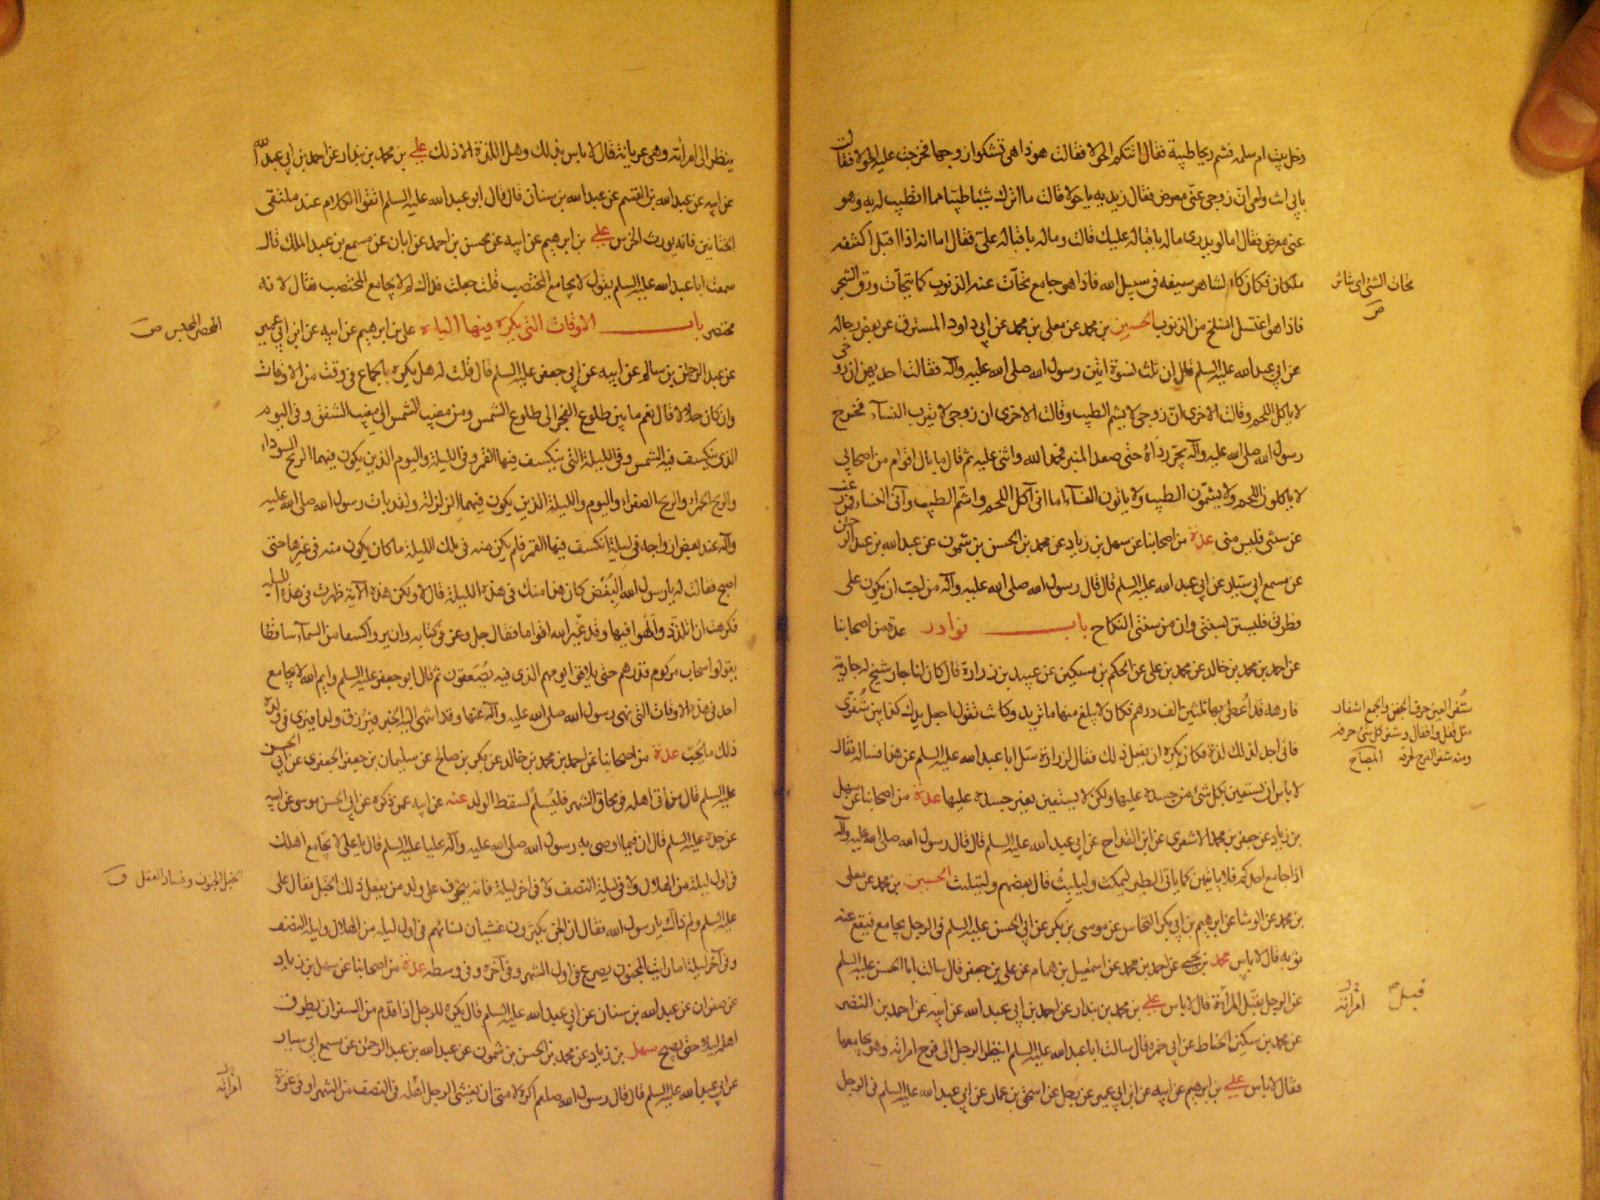 دخل بيت ام سلمه فشم ريحا طيبة فقال اتتكم الحولا فقالت هوذا هي تشكو زوجها فخرجت عليه الحولا فقالت
بابي انت وامي ان زوجي عني معرض فقال زيديه يا حولا قالت ما اترك شيئا طيبا مما اتطيب له به وهو
عني معرض فقال اما لو يدري ماله باقباله عليك قالت وماله باقباله علي فقال اما انه اذا اقبل اكتنفه
ملكان فكان كالشاهر سيفه في سبيل الله فاذا هو جامع تحات عنه الذنوب كما يتحات ورق الشجر
فاذا هو اغتسل انسلخ من الذنوب الحسين بن محمد عن معلى بن محمد عن ابي داود المسترق عن بعض رجاله
عن ابي عبد الله عليه السلم قال ان ثلث نسوة اتين رسول الله صلى الله عليه وآله فقالت احديهن ان زوجي
لا ياكل اللحم وقالت الاخرى ان زوجي لا يشم الطيب وقالت الاخرى ان زوجي لا يقرب النساء فخرج
رسول الله صلى الله عليه وآله يجر رداءه حتى صعد المنبر فحمد الله واثنى عليه ثم قال ما بال اقوام من اصحابي
لا ياكلون اللحم ولا يشمون الطيب ولا ياتون النساء اما اني آكل اللحم واشم الطيب وآتي النساء فمن رغب
عن سنتي فليس مني عدة من اصحابنا عن سهل بن زياد عن محمد بن الحسن بن شمون عن عبد الله بن عبد الرحمن
عن مسمع ابي سيار عن ابي عبد الله عليه السلم قال قال رسول الله صلى الله عليه وآله من احب ان يكون على
فطرتي فليستن بسنتي وان من سنتي النكاح باب نوادر عدة من اصحابنا
عن احمد بن محمد بن خالد عن محمد بن علي عن الحكم بن مسكين عن عبيد بن زرارة قال كان لنا جار شيخ له جارية
فارهه قد اعطي بها ثلثين الف درهم فكان لا يبلغ منها ما يريد وكانت تقول اجعل يدك كذا بين شفري
فاني اجد لذلك لذة فكان يكره ان يفعل ذلك فقال لزرارة سل ابا عبد الله عليه السلم عن هذا فساله فقال
لا باس ان يستعين بكل شئ من جسده عليها ولكن لا يستعين بغير جسده عليها عدة من اصحابنا عن سهل
بن زياد عن جعفر بن محمد الاشعري عن ابن القداح عن ابي عبد الله عليه السلم قال قال رسول الله صلى الله عليه وآله
اذا جامع احدكم فلا ياتيهن كما ياتي الطير ليمكث وليلبث قال بعضهم وليتلبث الحسين بن محمد عن معلى
بن محمد عن الوشا عن ابرهيم بن ابي بكر النحاس عن موسى بن بكر عن ابي الحسن عليه السلم في الرجل يجامع فيقع عنه
ثوبه قال لا باس محمد بن يحيى عن احمد بن محمد عن اسمعيل بن همام عن علي بن جعفر قال سالت ابا الحسن عليه السلم
عن الرجل يقبل المراة قال لا باس علي بن محمد بن بندار عن احمد بن ابي عبد الله عن ابيه عن احمد بن النضر
عن محمد بن سكين الحناط عن ابي حمزه قال سالت ابا عبد الله عليه السلم اينظر الرجل الى فرج امراته وهو يجامعها
فقال لا باس علي بن ابرهيم عن ابيه عن ابن ابي عمير عن رجل عن اسحق بن عمار عن ابي عبد الله عليه السلم في الرجل
تحات الشئ اي تناثر
ص
شفر العين حرف الجفن والجمع اشفار
مثل قفل واقفال وشفر كل شئ حرفه
ومنه شفر الفرج لحرفه المصباح
قبل
امراته
ينظر الى امراته وهي عريانة قال لا باس بذلك وهل اللذة الا ذلك علي بن محمد بن بندار عن احمد بن ابي عبد الله
عن ابيه عن عبد الله بن القسم عن عبد الله بن سنان قال قال ابو عبد الله عليه السلم اتقوا الكلام عند ملتقى
الختانين فانه يورث الخرس علي بن ابرهيم عن ابيه عن محسن بن احمد عن ابان عن مسمع بن عبد الملك قال
سمعت ابا عبد الله عليه السلم يقول لا يجامع المختضب قلت جعلت فداك لم لا يجامع المختضب فقال لانه
محتصر باب الاوقات التي يكره فيها الباه علي بن ابرهيم عن ابيه عن ابن ابي عمير
عن عبد الرحمن بن سالم عن ابيه عن ابي جعفر عليه السلم قال قلت له هل يكره الجماع في وقت من الاوقات
وان كان حلالا قال نعم ما بين طلوع الفجر الى طلوع الشمس ومن مغيب الشمس الى مغيب الشفق وفي اليوم
الذي ينكسف فيه الشمس وفي الليلة التي ينكسف فيها القمر وفي الليلة واليوم الذين يكون فيهما الريح السوداء
والريح الحمراء والريح الصفراء واليوم والليلة الذين يكون فيهما الزلزلة ولقد بات رسول الله صلى الله عليه
وآله عند بعض ازواجه في ليلة انكسف فيها القمر فلم يكن منه في تلك الليلة ما كان يكون منه في غيرها حتى
اصبح فقالت له يا رسول الله البغض كان هذا منك في هذه الليلة قال لا ولكن هذه الآية ظهرت في هذه الليلة
فكرهت ان اتلذذ والهو فيها وقد عير الله اقواما فقال جل وعز في كتابه وان يروا كسفا من السماء ساقطا
يقولوا سحاب مركوم فذرهم حتى يلاقوا يومهم الذي فيه يصعقون ثم قال ابو جعفر عليه السلم وايم الله لا يجامع
احد في هذه الاوقات التي نهى رسول الله صلى الله عليه وآله عنها وقد انتهى اليه الخبر فيرزق ولدا فيرى في ولده
ذلك ما يحب عدة من اصحابنا عن احمد بن محمد بن خالد عن بكر بن صالح عن سليمان بن جعفر الجعفري عن ابي الحسن
عليه السلم قال من اتى اهله في محاق الشهر فليسلم لسقط الولد عنه عن ابيه عمن ذكره عن ابي الحسن موسى عن ابيه
عن جده عليه السلم قال ان فيما اوصى به رسول الله صلى الله عليه وآله عليا عليه السلم قال يا علي لا تجامع اهلك
في اول ليلة من الهلال ولا في ليلة النصف ولا في اخر ليلة فانه يتخوف على ولد من يفعل ذلك الخبل فقال علي
عليه السلم ولم ذاك يا رسول الله فقال ان الجن يكثرون غشيان نسائهم في اول ليلة من الهلال وليلة النصف
وفي آخر ليلة اما رايت المجنون يصرع في اول الشهر وفي آخره وفي وسطه عدة من اصحابنا عن سهل بن زياد
عن صفوان عن عبد الله بن سنان عن ابي عبد الله عليه السلم قال يكره للرجل اذا قدم من السفر ان يطرق
اهله ليلا حتى يصبح سهل بن زياد عن محمد بن الحسن بن شمون عن عبد الله بن عبد الرحمن عن مسمع ابي سيار
عن ابي عبد الله عليه السلم قال قال رسول الله صلعم اكره لامتي ان يغشى الرجل اهله في النصف من الشهر او في غرة
الحصر الحبس ص
الخبل الجنون وفساد العقل ق
امراته